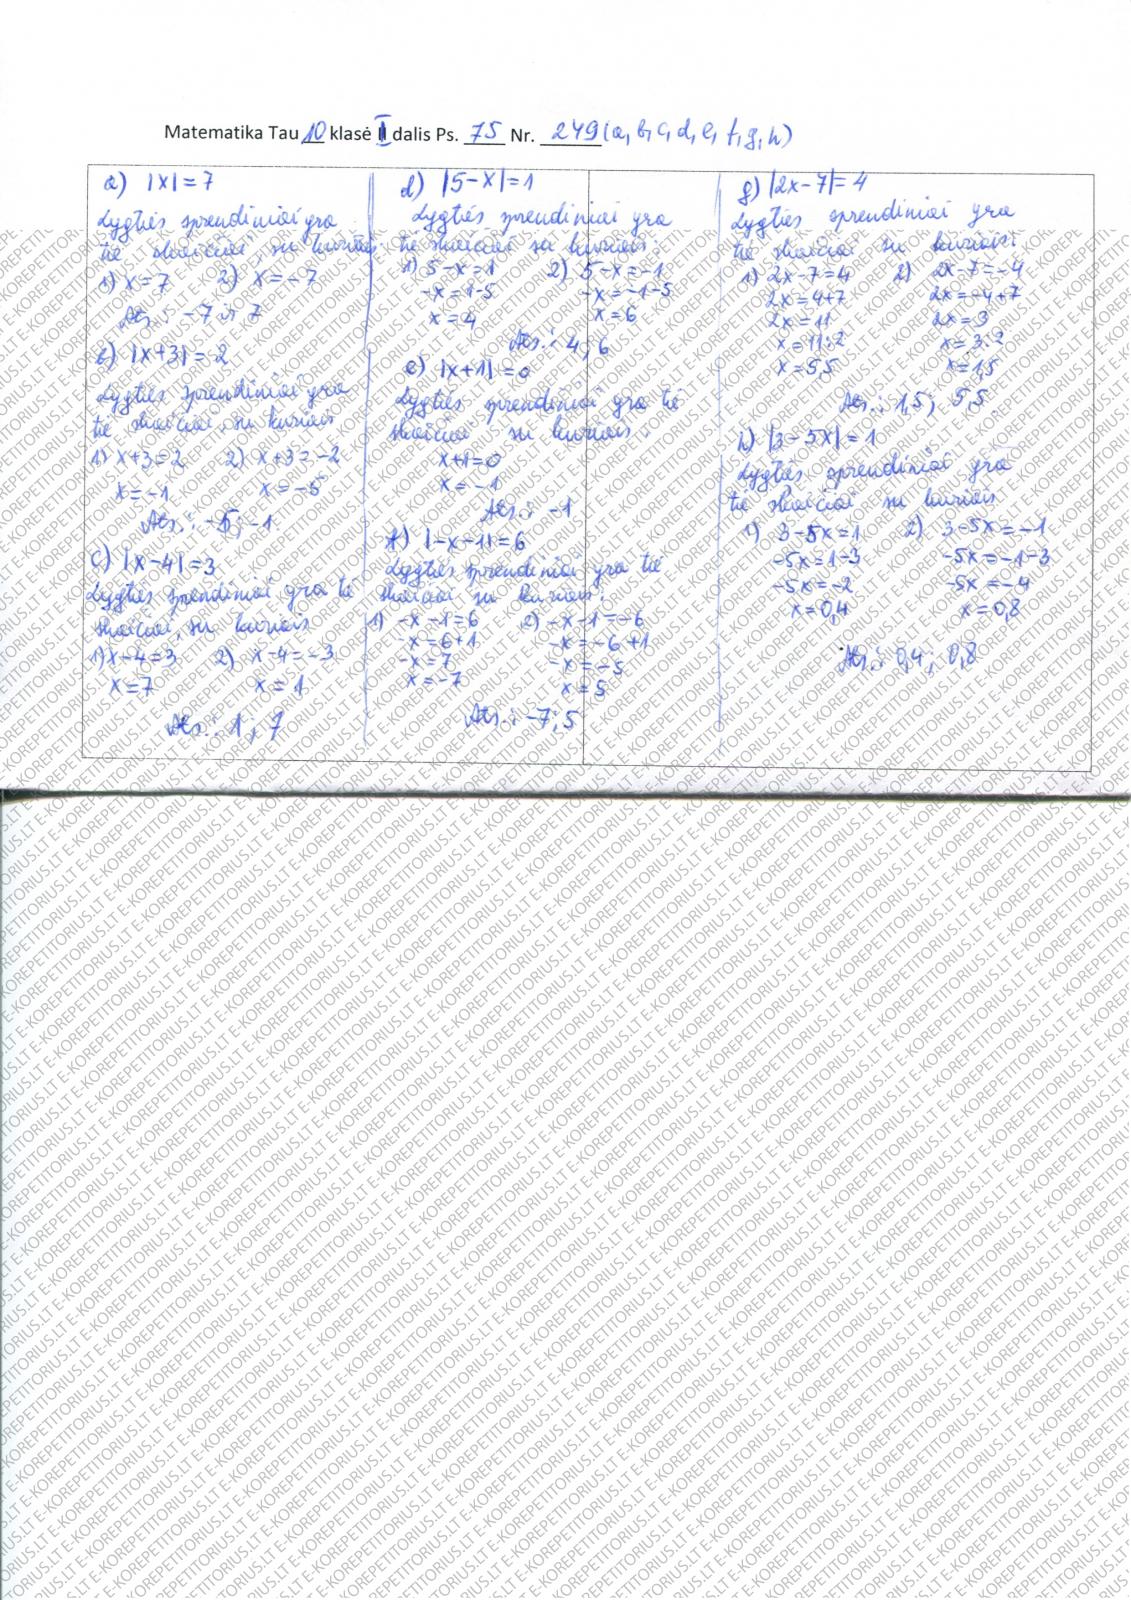 Matematika Tau 10 klasė II dalis Ps. 75 Nr. 249(a, b, c, d, e, f, g, h)
a) |x| = 7
Lygties sprendiniai yra
tie skaičiai, su kuriais:
1) x = 7 2) x = -7
Ats.: -7 ir 7
b) |x+3| = 2
Lygties sprendiniai yra
tie skaičiai, su kuriais
1) x+3=2 2) x+3=-2
x = -1 x = -5
Ats.: -5; -1
c) |x-4| = 3
Lygties sprendiniai yra tie
skaičiai, su kuriais
1) x-4=3 2) x-4=-3
x=7 x=1
Ats.: 1; 7
d) |5-x| = 1
Lygties sprendiniai yra
tie skaičiai su kuriais:
1) 5-x=1 2) 5-x=-1
-x=1-5 -x=-1-5
x=4 x=6
Ats.: 4; 6
e) |x+1| = 0
Lygties sprendiniai yra tie
skaičiai su kuriais:
x+1=0
x=-1
Ats.: -1
f) |-x-1| = 6
Lygties sprendiniai yra tie
skaičiai su kuriais:
1) -x-1=6 2) -x-1=-6
-x=6+1 -x=-6+1
-x=7 -x=-5
x=-7 x=5
Ats.: -7; 5
g) |2x-7| = 4
Lygties sprendiniai yra
tie skaičiai su kuriais:
1) 2x-7=4 2) 2x-7=-4
2x=4+7 2x=-4+7
2x=11 2x=3
x=11:2 x=3:2
x=5,5 x=1,5
Ats.: 1,5; 5,5
h) |3-5x| = 1
Lygties sprendiniai yra
tie skaičiai su kuriais
1) 3-5x=1 2) 3-5x=-1
-5x=1-3 -5x=-1-3
-5x=-2 -5x=-4
x=0,4 x=0,8
Ats.: 0,4; 0,8
E-KOREPETITORIUS.LT